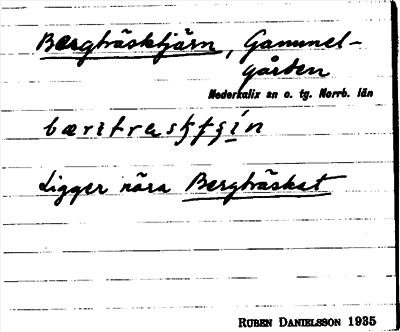 Bergträsktjärn, Gammel-
gården
Nederkalix sn o. tg. Norrb. län
Ligger nära Bergträsket
RUBEN DANIELSSON 1935